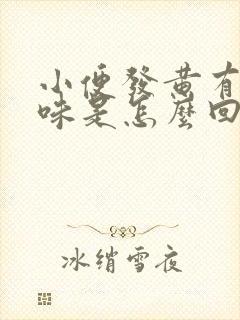 小便發黃有
味是怎麼回
冰綃雪夜